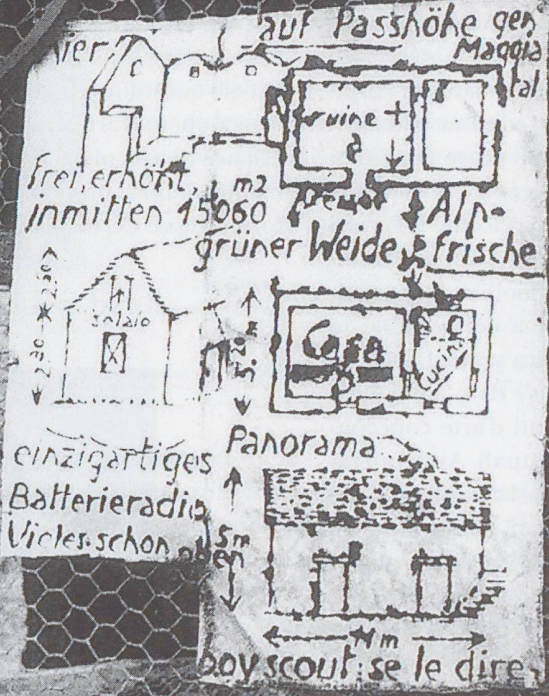 hier auf Passhöhe gen
Maggia
tal
ruine +
frei, erhöht, m2
inmitten 15060
grüner Weide
Alp-
frische
2.30
solaio
2.30
5.20 m
Casa
Cucina
Panorama
einzigartiges
Batterieradio
Vieles schon oben
5m
11 m
boy scout: se le dire